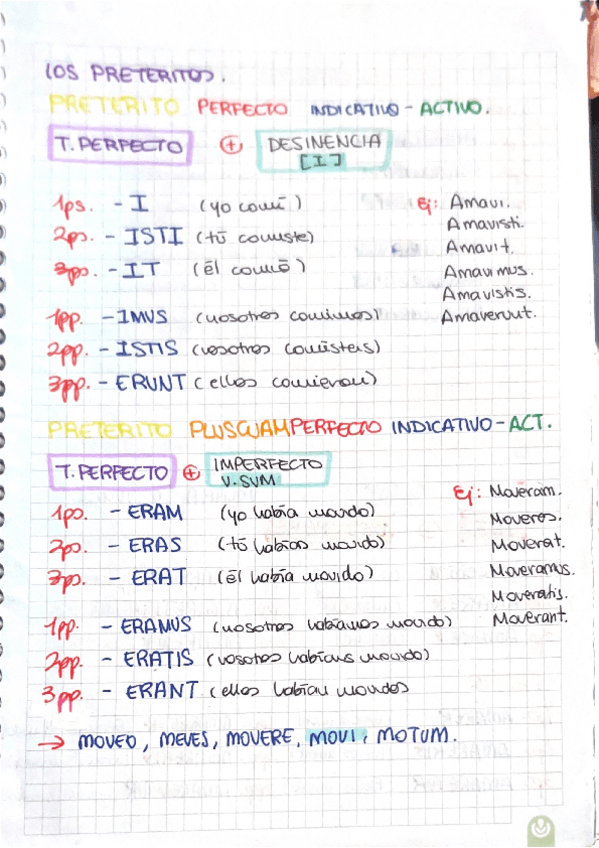 LOS PRETERITOS.
PRETERITO PERFECTO INDICATIVO - ACTIVO.
T. PERFECTO + DESINENCIA
[I]
1ps. - I (yo comí) Ej: Amavi.
2ps. - ISTI (tú comiste) Amavisti.
3ps. - IT (él comió) Amavit.
Amavimus.
1pp. - IMUS (nosotros comimos) Amavistis.
Amaverunt.
2pp. - ISTIS (vosotros comísteis)
3pp. - ERUNT (ellos comieron)
PRETERITO PLUSCUAMPERFECTO INDICATIVO - ACT.
T. PERFECTO + IMPERFECTO
V. SUM
1ps. - ERAM (yo había movido) Ej: Moveram.
2ps. - ERAS (tú habías movido) Moveras.
3ps. - ERAT (él había movido) Moverat.
Moveramus.
Moveratis.
1pp. - ERAMUS (nosotros habíamos movido) Moverant.
2pp. - ERATIS (vosotros habíais movido)
3pp. - ERANT (ellos habían movidos
→ MOVEO, MEVES, MOVERE, MOVI, MOTUM.